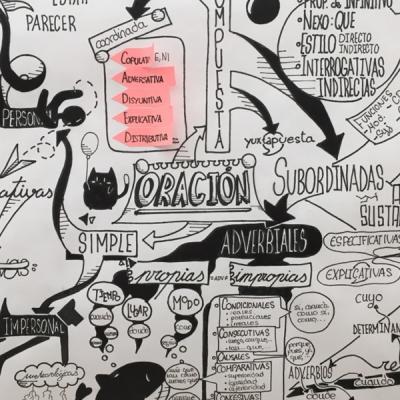 PARECER
coordinada
COPULAT E, NI
ADVERSATIVA
DISYUNTIVA
EXPLICATIVA
DISTRIBUTIVA
OMPUESTA
PROP. DE INFINITIVO
• NEXO: QUE
• ESTILO DIRECTO
INDIRECTO
• INTERROGATIVAS
INDIRECTAS
FUNCIONES
yuxtapuesta
PERSONA
ORACIÓN
SUBORDINADAS
SUSTA
ativas
SIMPLE
ADVERBIALES
ESPECIFICATIVAS
propias
impropias
EXPLICATIVAS
CUYO
DETERMINAN
TIEMPO
LUGAR
MODO
cuando
donde
como
CONDICIONALES
CONSECUTIVAS
CAUSALES
COMPARATIVAS
• superioridad
• igualdad
CONCESIVAS
IMPERSONAL
meteorológicas
ADVERBIOS
cuando
donde